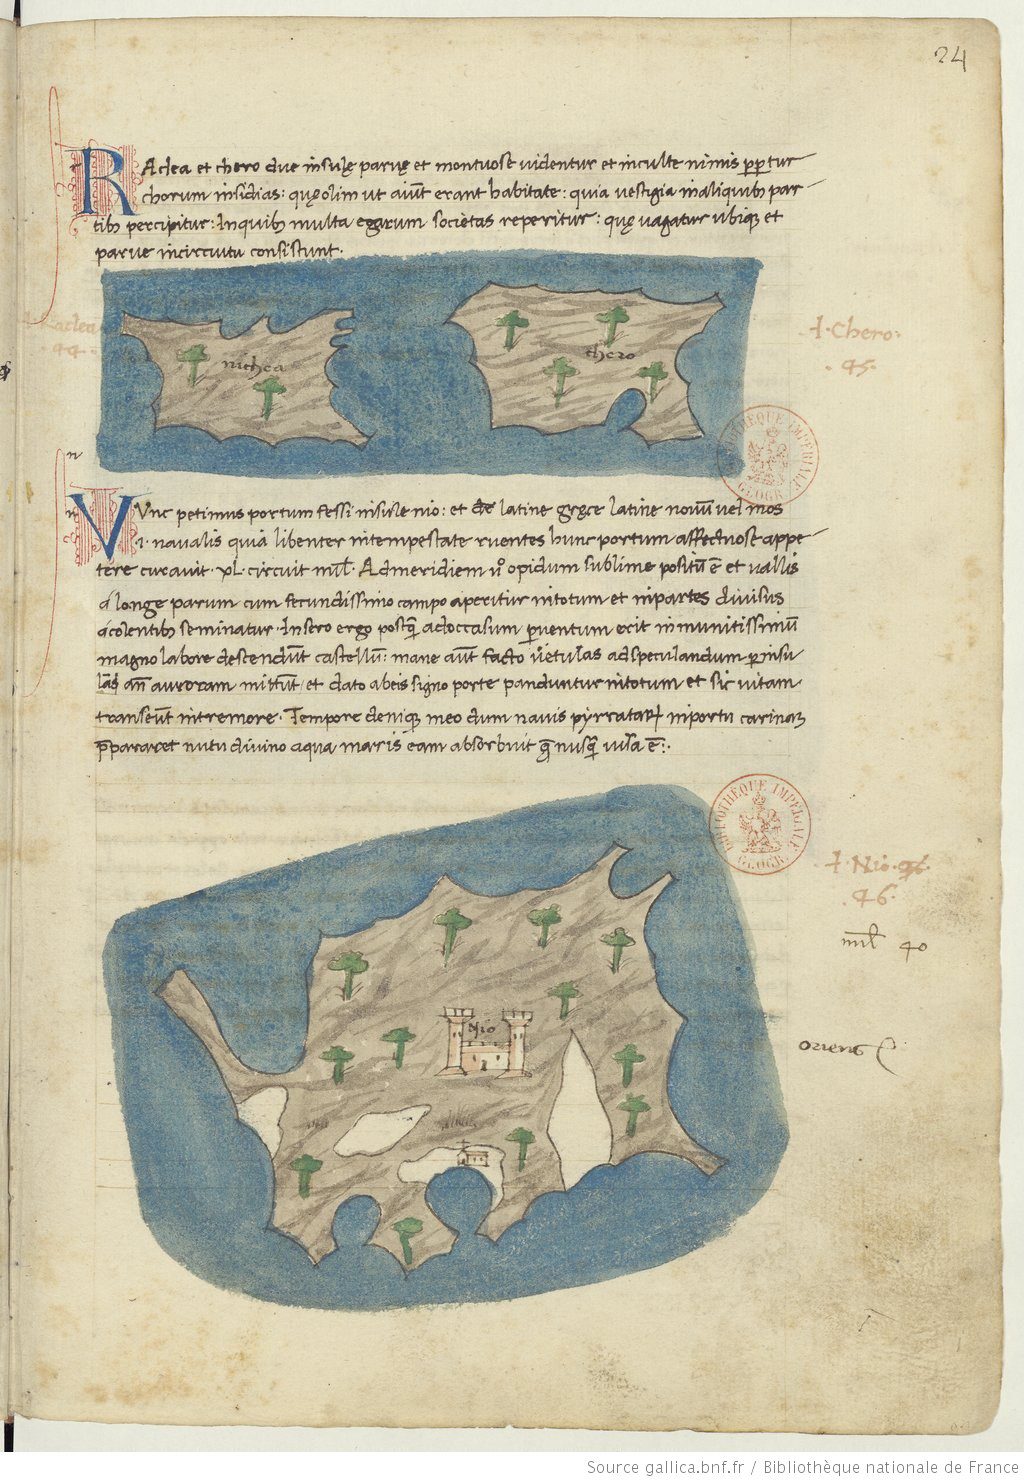 24
RAclea et chero due insulę parvę et montuose videntur et inculte nimis p ptur
chorum insidias: quę olim ut aiūt erant habitate: quia vestigia in aliquib par
tib percipitur: In quib multa egarum societas reperitur: quę vagatur ubiq et
parve in circuitu consistunt.
44.
nichea
chero
I. Chero.
.45.
n
VUnc petimus portum fessi insule nio: et de latine gręce latine novū vel mos
.i. navalis quia libenter in tempestate ruentes hunc portum affectuose appe
tere curavit. xl. circuit mil. Ad meridiem v opidum sublime positū ē et vallis
a longe parum cum fecundissimo campo aperitur in totum et in partes divisus
acolentib seminatur. In sero ergo postq ad occasum perventum erit in munitissimū
magno labore descendūt castellū: mane aūt facto vetulas ad speculandum per insu
las añ auroram mittūt: et dato ab eis signo porte panduntur in totum et sic vitam
transeūt in tremore. Tempore deniq meo dum navis pyrratarum in portu carinam
ppararet nutu divino aqua maris eam absorbuit q nusq visa ē:.
BIBLIOTHÈQUE IMPÉRIALE
GÉOGR.
I. Nio.
.46.
mil 40
Nio
oriens
Source gallica.bnf.fr / Bibliothèque nationale de France